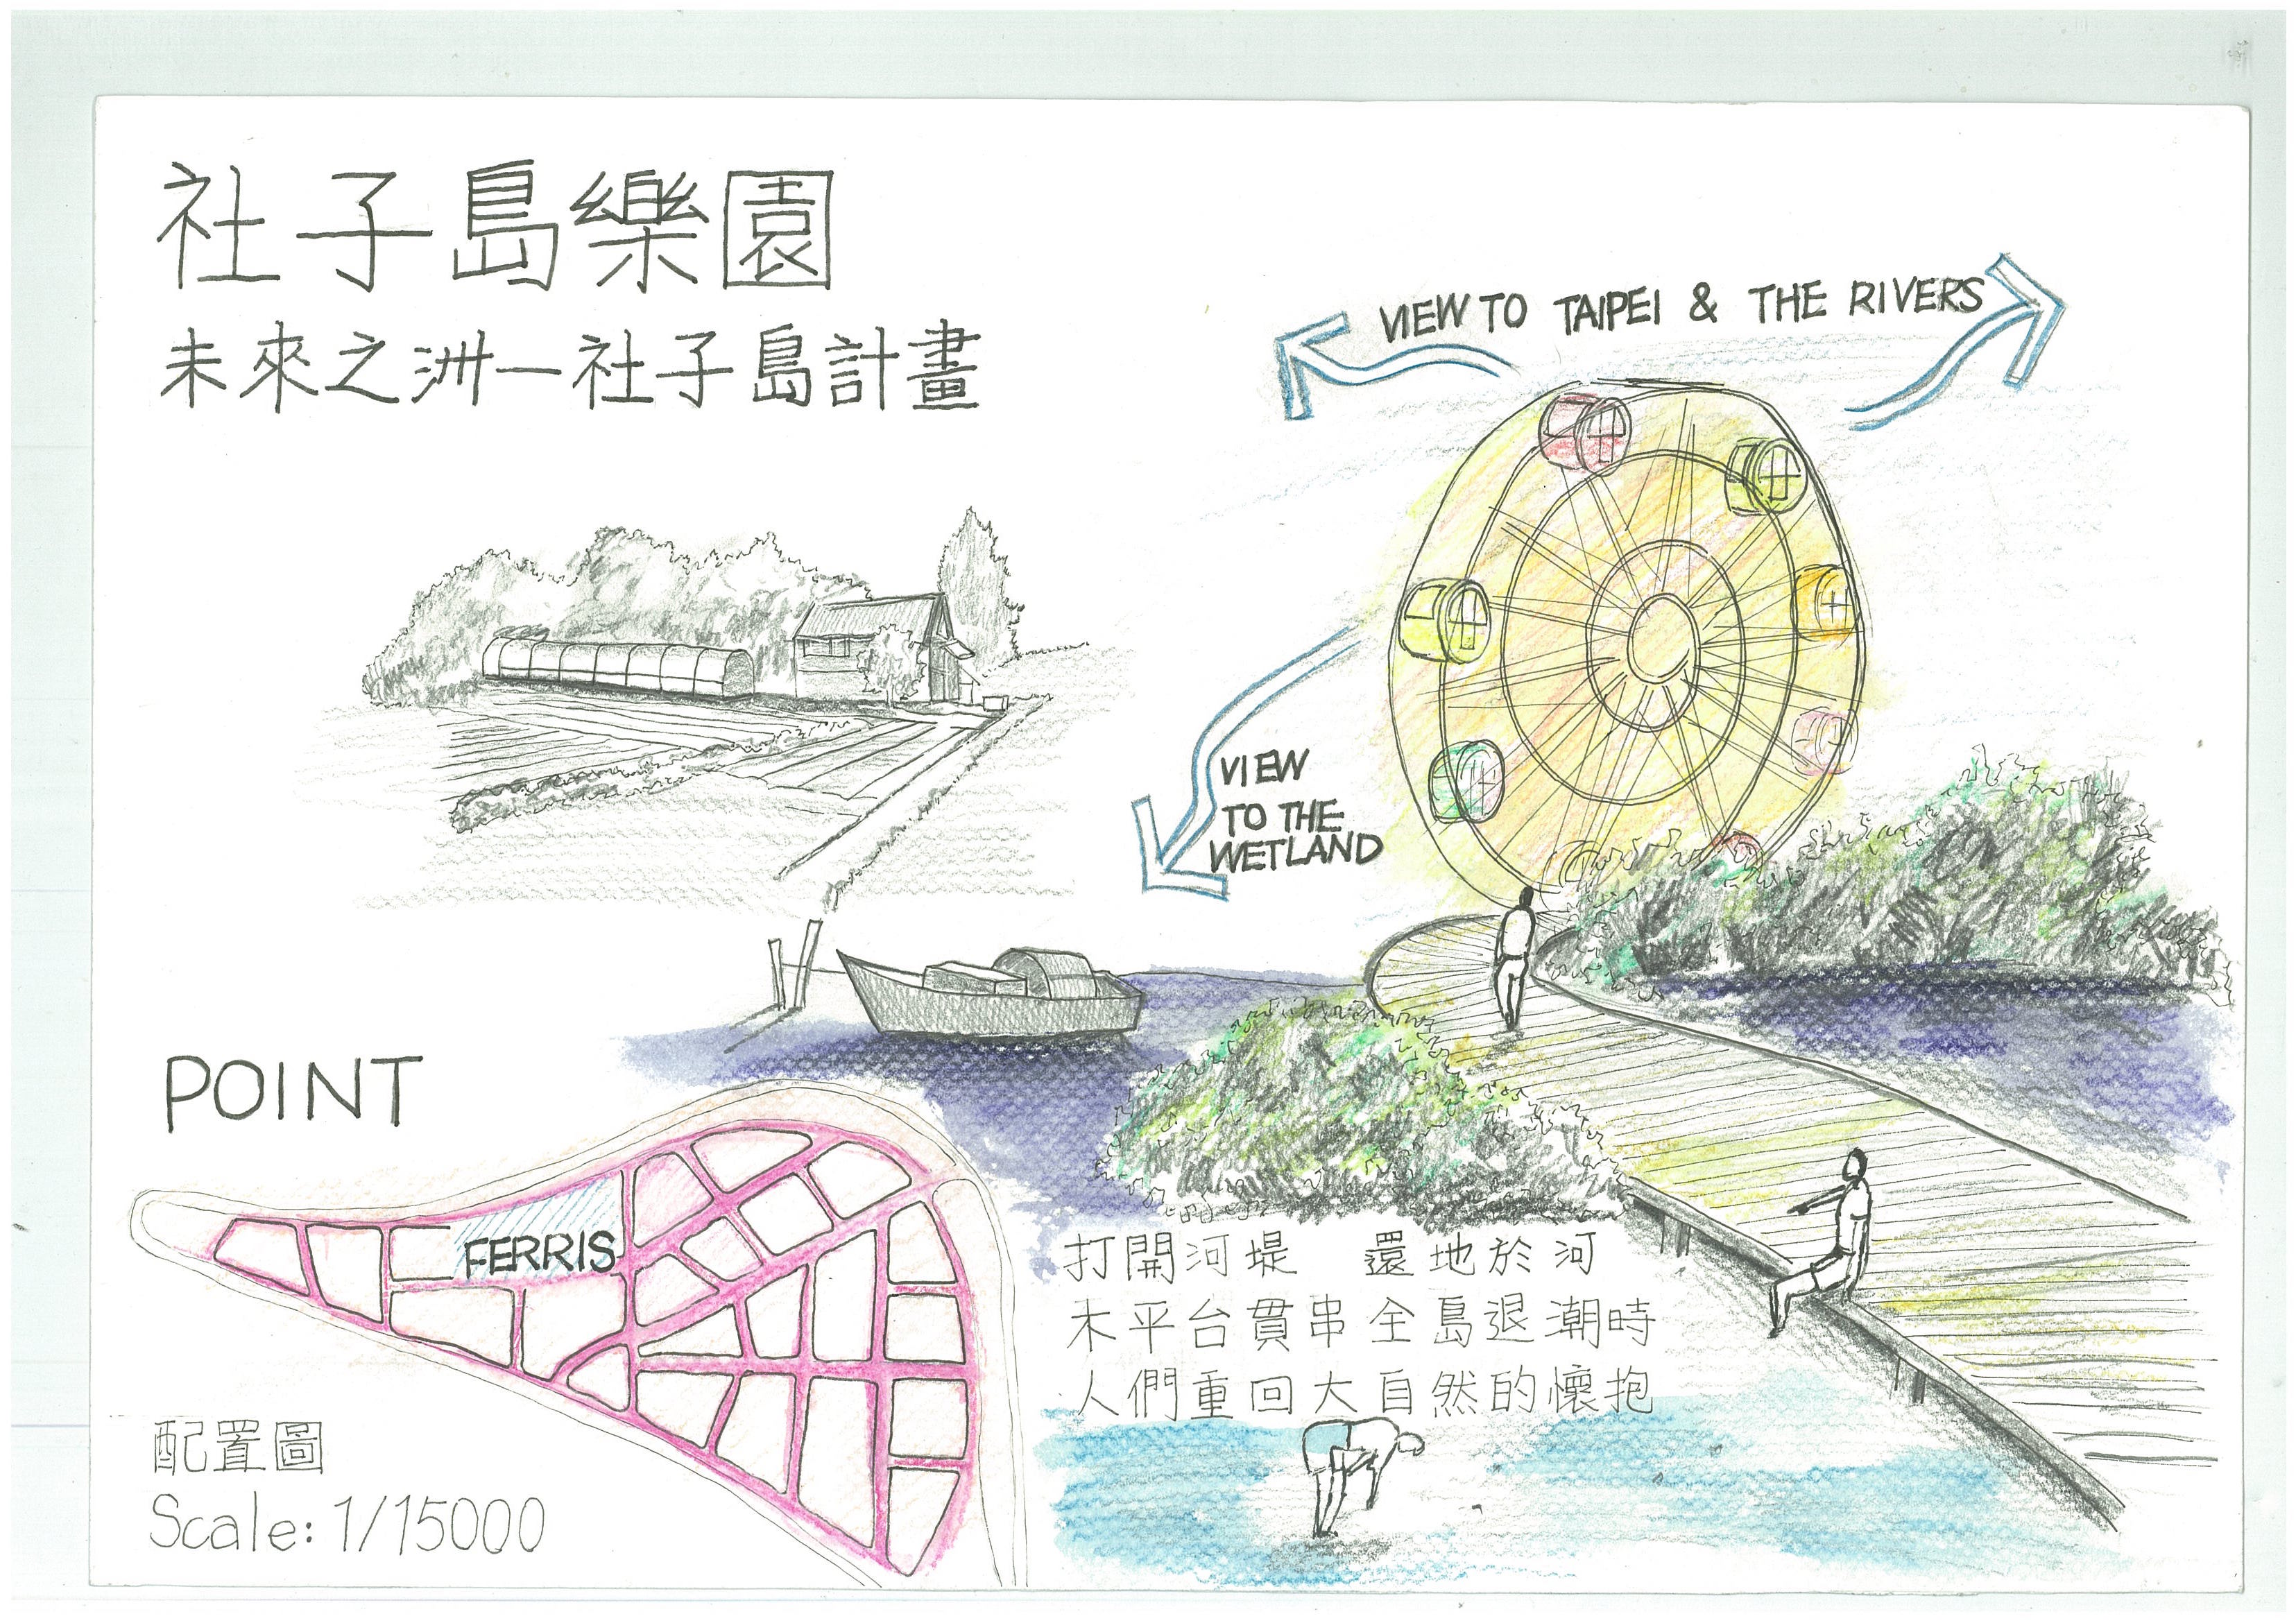 社子島樂園
未來之洲—社子島計畫
VIEW TO TAIPEI & THE RIVERS
VIEW
TO THE
WETLAND
POINT
FERRIS
打開河堤 還地於河
木平台貫串全島退潮時
人們重回大自然的懷抱
配置圖
Scale: 1/15000